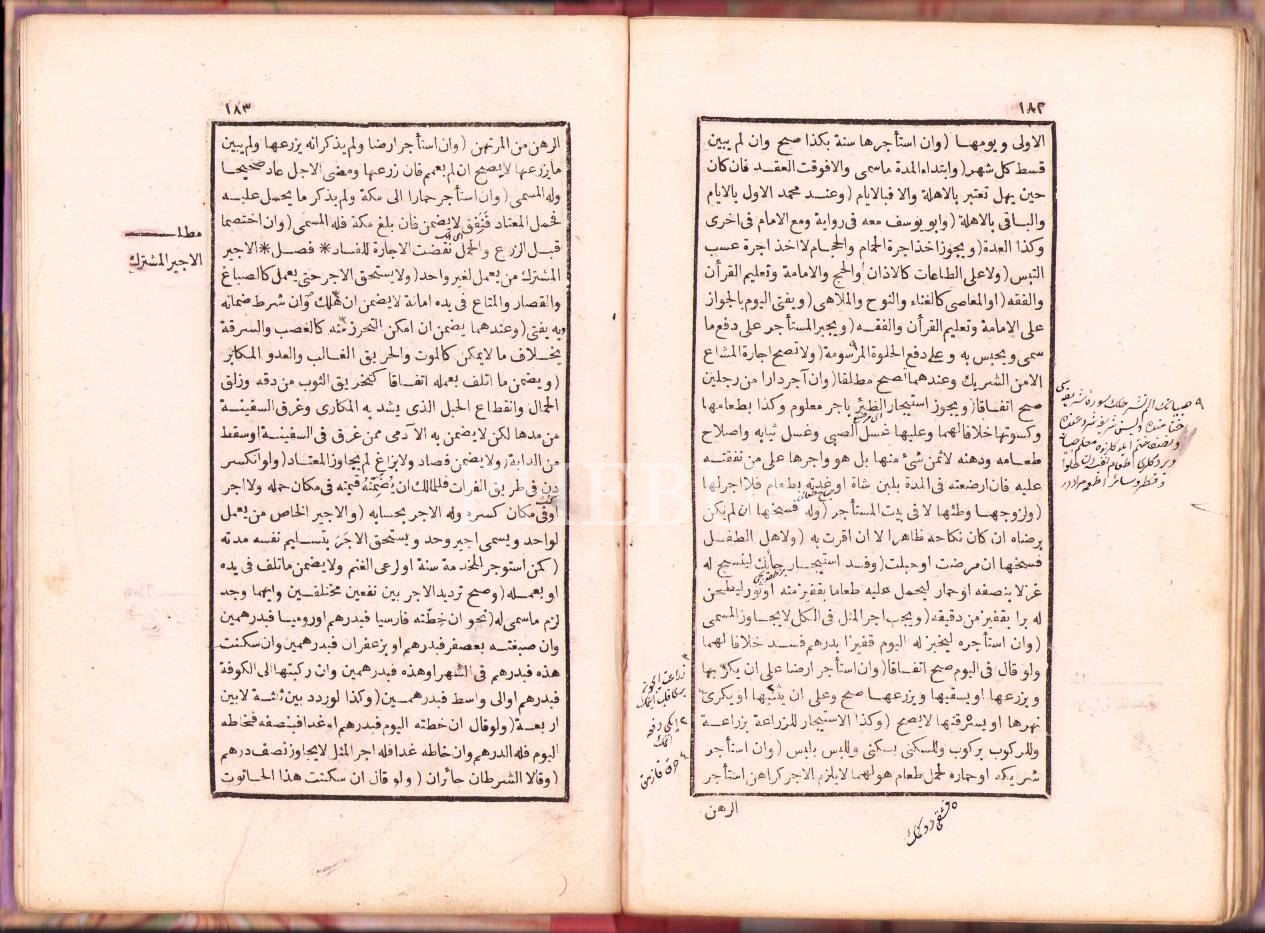 ١٨٢
الاولى ويومها (وان استأجرها سنة بكذا صح وان لم يبين
قسط كل شهر (وابتداء المدة ماسمى والافوقت العقد فان كان
حين يهل تعتبر بالاهلة والا فبالايام (وعند محمد الاول بالايام
والباقى بالاهلة (وابو يوسف معه فى رواية ومع الامام فى اخرى
وكذا العدة (ويجوز اخذ اجرة الحمام والحجام لا اخذ اجرة عسب
التيس (ولا على الطاعات كالاذان والحج والامامة وتعليم القرأن
والفقه (او المعاصى كالغناء والنوح والملاهى (ويفتى اليوم بالجواز
على الامامة وتعليم القرأن والفقه (ويجبر المستأجر على دفع ما
سمى ويحبس به وعلى دفع الحلوة المرسومة (ولا تصح اجارة المشاع
الا من الشريك وعندهما تصح مطلقا (وان آجر دارا من رجلين
صح اتفاقا (ويجوز استيجار الظئر باجر معلوم وكذا بطعامها
وكسوتها خلافا لهما وعليها غسل الصبى وغسل ثيابه واصلاح
طعامه ودهنه لا ثمن شئ منها بل هو واجرها على من نفقته
عليه فان ارضعته فى المدة بلبن شاة او غذته بطعام فلا اجر لها
(ولزوجها وطئها لا فى بيت المستأجر (وله فسخها ان لم يكن
برضاه ان كان نكاحه ظاهرا لا ان اقرت به (ولاهل الطفل
فسخها ان مرضت او حبلت (وفسد استيجار حائك لينسج له
غزلا بنصفه او حمار ليحمل عليه طعاما بقفيز منه او ثور ليطحن
له برا بقفيز من دقيقه (ويجب اجر المثل فى الكل لا يجاوز المسمى
(وان استأجره ليخبز له اليوم قفيزا بدرهم فسد خلافا لهما
ولو قال فى اليوم صح اتفاقا (وان استأجر ارضا على ان يكربها
ويزرعها او يسقيها ويزرعها صح وعلى ان يثنيها او يكرى
نهرها او يسرقنها لا يصح (وكذا الاستيجار للزراعة بزراعة
وللركوب بركوب وللسكنى بسكنى وللبس بلبس (وان استأجر
شريكه او حماره لحمل طعام هو لهما لا يلزم الاجر كراهن استأجر
الرهن
١٨٣
الرهن من المرتهن (وان استأجر ارضا ولم يذكر انه يزرعها ولم يبين
ما يزرعها لا يصح ان لم يعمم فان زرعها ومضى الاجل عاد صحيحا
وله المسمى (وان استأجر حمارا الى مكة ولم يذكر ما يحمل عليه
فحمل المعتاد فنفق لا يضمن فان بلغ مكة فله المسمى (وان اختصما
قبل الزرع والحمل نقضت الاجارة للفساد * فصل * الاجير
المشترك من يعمل لغير واحد (ولا يستحق الاجر حتى يعمل كالصباغ
والقصار والمتاع فى يده امانة لا يضمن ان هلك وان شرط ضمانه
وبه يفتى (وعندهما يضمن ان امكن التحرز منه كالغصب والسرقة
بخلاف ما لا يمكن كالموت والحريق الغالب والعدو المكابر
(ويضمن ما اتلف بعمله اتفاقا كتخريق الثوب من دقه وزلق
الحمال وانقطاع الحبل الذى يشد به المكارى وغرق السفينة
من مدها لكن لا يضمن به الآدمى ممن غرق فى السفينة او سقط
من الدابة (ولا يضمن فصاد ولا بزاغ لم يجاوز المعتاد (ولو انكسر
دن فى طريق الفرات فللمالك ان يضمنه قيمته فى مكان حمله ولا اجر
او فى مكان كسره وله الاجر بحسابه (والاجير الخاص من يعمل
لواحد ويسمى اجير وحد ويستحق الاجر بتسليم نفسه مدته
(كمن استوجر للخدمة سنة او لرعى الغنم ولا يضمن ما تلف فى يده
او بعمله (وصح ترديد الاجر بين نفعين مختلفين وايهما وجد
لزم ما سمى له (نحو ان خطته فارسيا فبدرهم او روميا فبدرهمين
وان صبغته بعصفر فبدرهم او بزعفران فبدرهمين وان سكنت
هذه فبدرهم فى الشهر او هذه فبدرهمين وان ركبتها الى الكوفة
فبدرهم او الى واسط فبدرهمين (وكذا لو ردد بين ثلثة لا بين
اربعة (ولو قال ان خطته اليوم فبدرهم او غدا فبنصفه فخاطه
اليوم فله الدرهم وان خاطه غدا فله اجر المثل لا يجاوز نصف درهم
(وقالا الشرطان جائزان (ولو قال ان سكنت هذا الحانوت
مطلب
الاجير المشترك